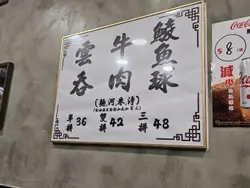 鯪魚球
牛肉
雲吞
(麵河米淨)
三拼 48
雙拼 42
單拼 36
Coca-Cola
$8
減少